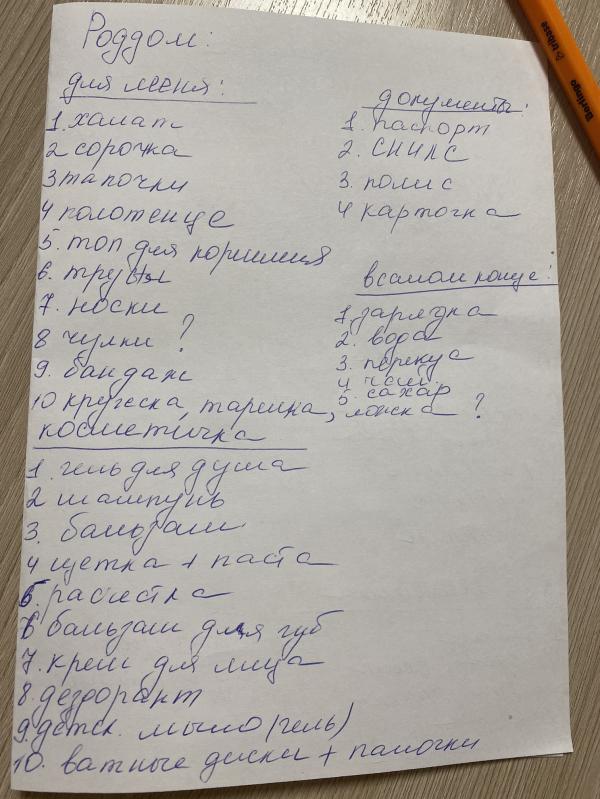 Роддом:
для меня:
1. халат
2 сорочка
3 тапочки
4 полотенце
5. топ для кормления
6. трусы
7. носки
8 чулки ?
9. бандаж
10 кружка, тарелка, ложка ?
косметичка
1. гель для душа
2 шампунь
3. бальзам
4 щетка + паста
5. расчестка
6 бальзам для губ
7. крем для лица
8. дезодорант
9. детск. мыло (гель)
10. ватные диски + палочки
документы:
1. паспорт
2. СНИЛС
3. полис
4 карточка
в самом конце:
1. зарядка
2. вода
3. перекус
4 чай
5. сахар
Berlingo tribase